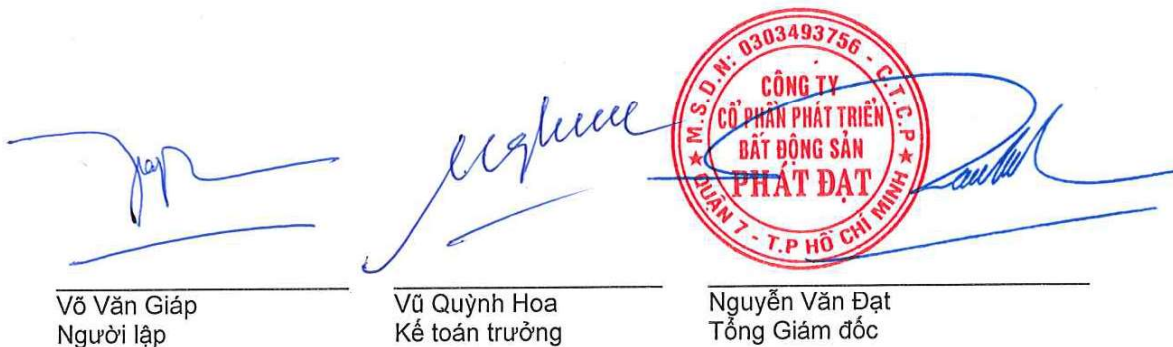 M.S.D.N: 0303493756 - C.T.C.P
CÔNG TY
CỔ PHẦN PHÁT TRIỂN
BẤT ĐỘNG SẢN
PHÁT ĐẠT
QUẬN 7 - T.P HỒ CHÍ MINH
Võ Văn Giáp
Người lập
Vũ Quỳnh Hoa
Kế toán trưởng
Nguyễn Văn Đạt
Tổng Giám đốc